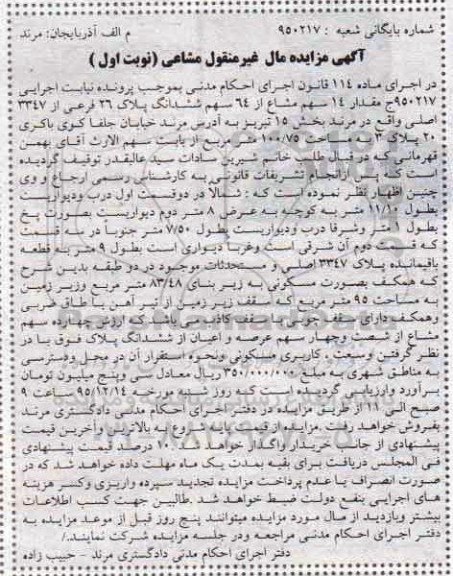 شماره بایگانی شعبه : ۹۵۰۲۱۷ م الف آذربایجان: مرند
آگهی مزایده مال غیرمنقول مشاعی (نوبت اول )
در اجرای ماده ۱۱۴ قانون اجرای احکام مدنی بموجب پرونده نیابت اجرایی
۹۵۰۲۱۷ج مقدار ۱۴ سهم مشاع از ۶۴ سهم ششدانگ پلاک ۲۶ فرعی از ۳۳۴۷
اصلی واقع در مرند بخش ۱۵ تبریز به آدرس مرند خیابان جلفا کوی باکری
۲۰ پلاک متر مربع از بابت سهم الارث آقای بهمن
قهرمانی که در قبال طلب خانم شیرین سادات سید عالیقدر توقیف گردیده
است که پس ازانجام تشریفات قانونی به کارشناس رسمی ارجاع و وی
چنین اظهار نظر نموده است که : شمالا در دوقسمت اول درب ودیواریست
بطول ۱۱/۱۰ متر به کوچه به عرض ۸ متر دوم دیواریست بصورت پخ
بطول ۱ متر وشرقا درب ودیواریست بطول ۷/۵۰ متر جنوبا در سه قسمت
که قسمت دوم آن شرقی است وغربا دیواری است بطول ۹ متر به قطعه
باقیمانده پلاک ۳۳۴۷ اصلی و مستحدثات موجود در دو طبقه بدین شرح
که همکف بصورت مسکونی به زیر بنای ۸۳/۴۸ متر مربع وزیر زمین
به مساحت ۹۵ متر مربع که سقف زیر زمین از تیر آهن با طاق ضربی
وهمکف دارای سقف می باشد که ارزش چهارده سهم
مشاع از شصت وچهار سهم عرصه و اعیان از ششدانگ پلاک فوق با در
نظر گرفتن وسعت ، کاربری مسکونی ونحوه استقرار آن در محل ودسترسی
به مناطق شهری به مبلغ ۳۵۰/۰۰۰/۰۰۰ ریال معادل سی وپنج میلیون تومان
برآورد وارزیابی گردیده است که روز شنبه مورخه ۹۵/۱۲/۱۴ ساعت ۹
صبح الی ۱۱ از طریق مزایده در دفتر اجرای احکام مدنی دادگستری مرند
بفروش خواهد رفت .مزایده از قیمت به بالاترین وآخرین قیمت
پیشنهادی از جانب خریدار واگذار خواهد شد ۱۰ درصد قیمت پیشنهادی
فی المجلس دریافت برای بقیه بمدت یک ماه مهلت داده خواهد شد که در
صورت انصراف یا عدم پرداخت مزایده تجدید سپرده واریزی وکسر هزینه
های اجرایی بنفع دولت ضبط خواهد شد .طالبین جهت کسب اطلاعات
بیشتر وبازدید از مال مورد مزایده میتوانند پنج روز قبل از موعد مزایده به
دفتر اجرای احکام مدنی مراجعه ودر جلسه مزایده شرکت نمایند./
دفتر اجرای احکام مدنی دادگستری مرند - حبیب زاده